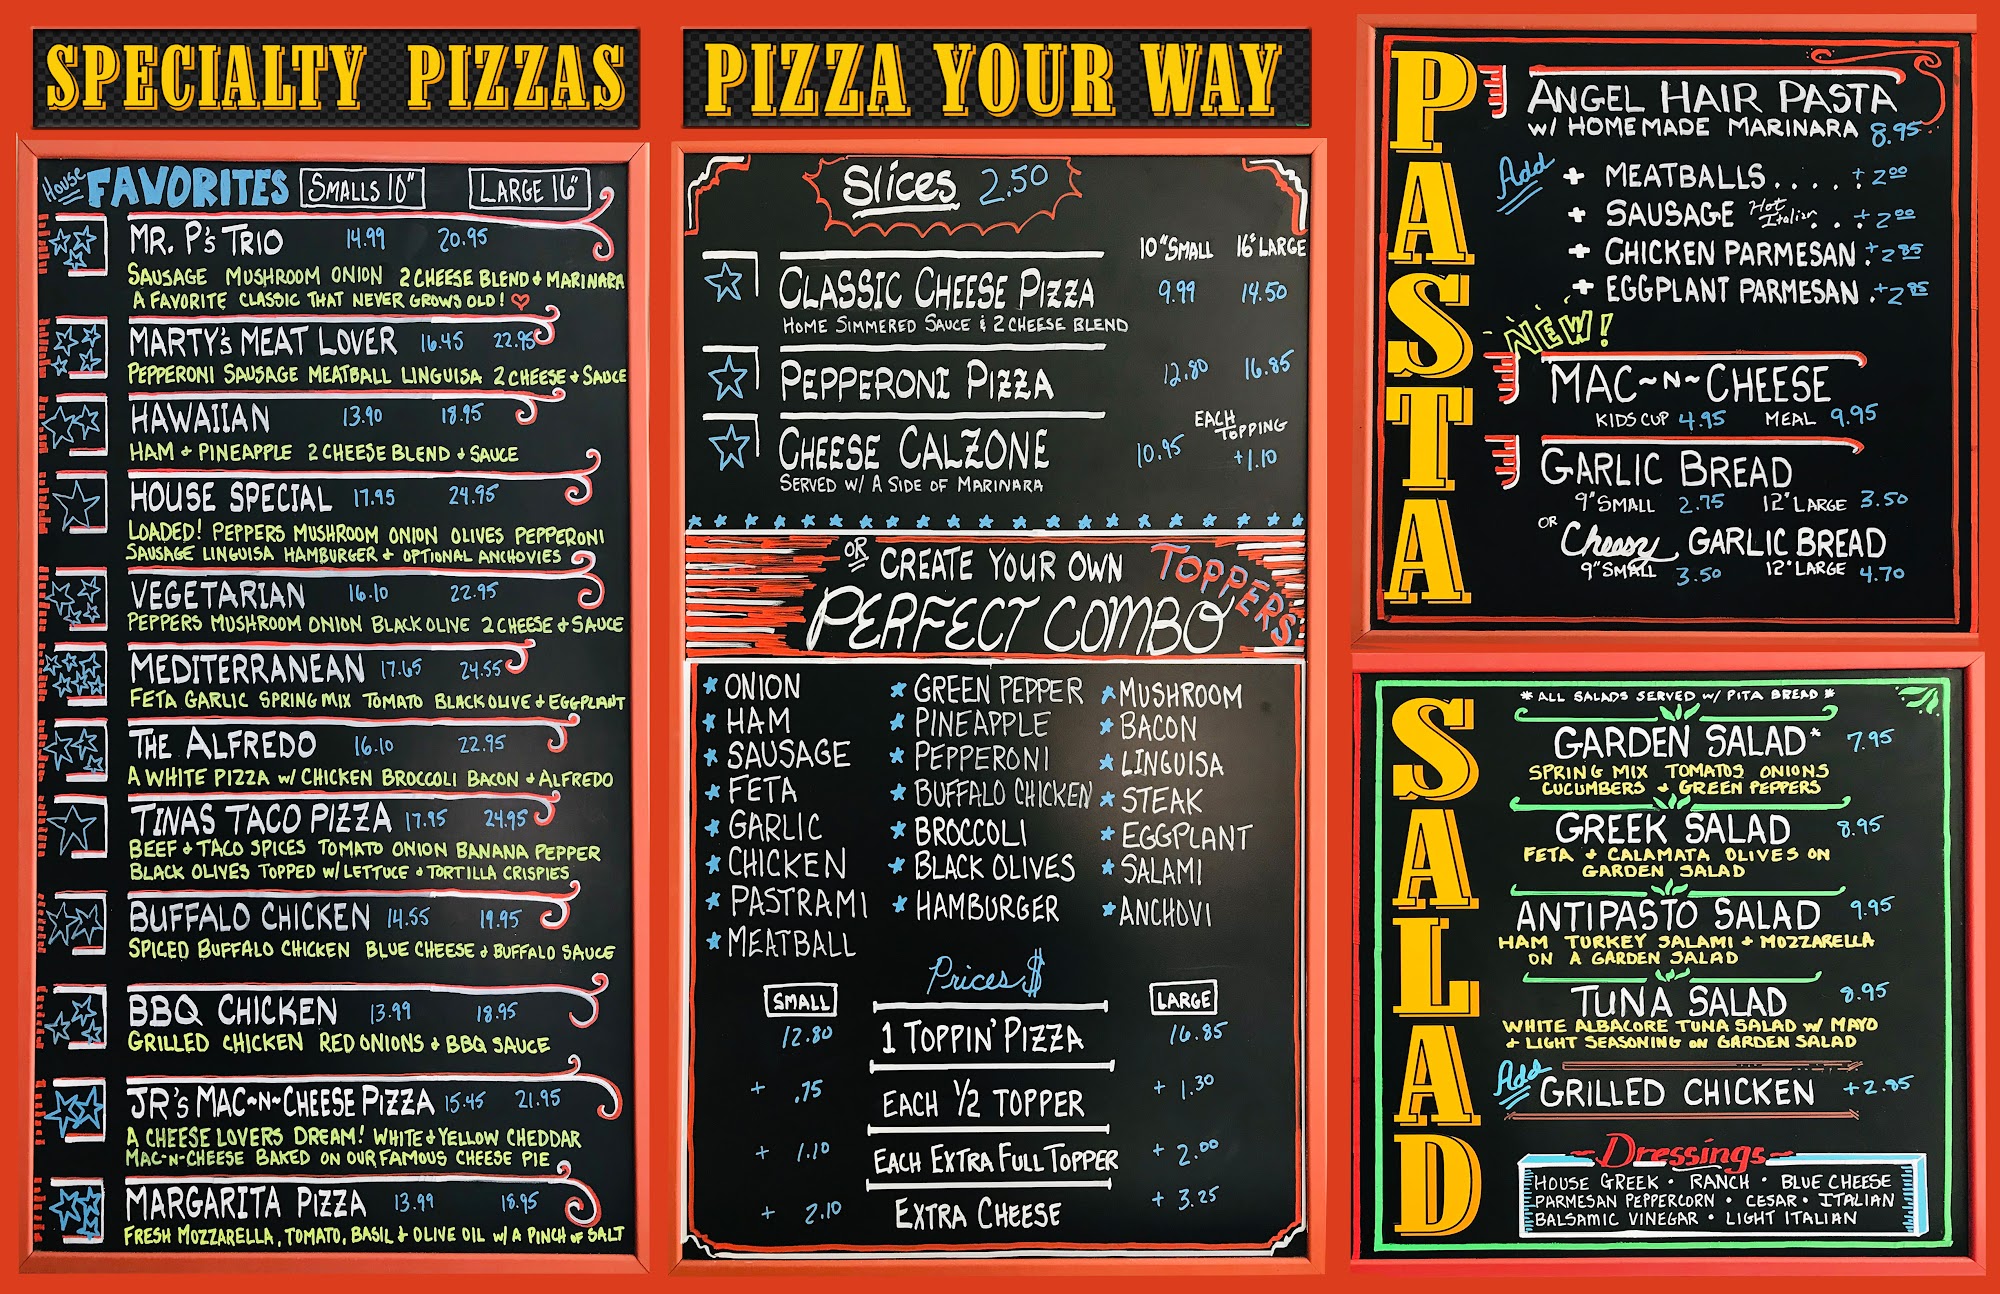 SPECIALTY PIZZAS
House FAVORITES SMALLS 10" LARGE 16"
MR. P's TRIO 14.99 20.95
SAUSAGE MUSHROOM ONION 2 CHEESE BLEND & MARINARA
A FAVORITE CLASSIC THAT NEVER GROWS OLD!
MARTY's MEAT LOVER 16.45 22.95
PEPPERONI SAUSAGE MEATBALL LINGUISA 2 CHEESE & SAUCE
HAWAIIAN 13.90 18.95
HAM & PINEAPPLE 2 CHEESE BLEND & SAUCE
HOUSE SPECIAL 17.95 24.95
LOADED! PEPPERS MUSHROOM ONION OLIVES PEPPERONI
SAUSAGE LINGUISA HAMBURGER & OPTIONAL ANCHOVIES
VEGETARIAN 16.10 22.95
PEPPERS MUSHROOM ONION BLACK OLIVE 2 CHEESE & SAUCE
MEDITERRANEAN 17.65 24.55
FETA GARLIC SPRING MIX TOMATO BLACK OLIVE & EGGPLANT
THE ALFREDO 16.10 22.95
A WHITE PIZZA W/ CHICKEN BROCCOLI BACON & ALFREDO
TINAS TACO PIZZA 17.95 24.95
BEEF & TACO SPICES TOMATO ONION BANANA PEPPER
BLACK OLIVES TOPPED W/ LETTUCE & TORTILLA CRISPIES
BUFFALO CHICKEN 14.55 19.95
SPICED BUFFALO CHICKEN BLUE CHEESE & BUFFALO SAUCE
BBQ CHICKEN 13.99 18.95
GRILLED CHICKEN RED ONIONS & BBQ SAUCE
JR's MAC~N~CHEESE PIZZA 15.45 21.95
A CHEESE LOVERS DREAM! WHITE & YELLOW CHEDDAR
MAC-N-CHEESE BAKED ON OUR FAMOUS CHEESE PIE
MARGARITA PIZZA 13.99 18.95
FRESH MOZZARELLA, TOMATO, BASIL & OLIVE OIL W/ A PINCH OF SALT
PIZZA YOUR WAY
Slices 2.50
10" SMALL 16" LARGE
CLASSIC CHEESE PIZZA 9.99 14.50
HOME SIMMERED SAUCE & 2 CHEESE BLEND
PEPPERONI PIZZA 12.80 16.85
EACH TOPPING
CHEESE CALZONE 10.95 +1.10
SERVED W/ A SIDE OF MARINARA
OR CREATE YOUR OWN TOPPERS
PERFECT COMBO
ONION GREEN PEPPER MUSHROOM
HAM PINEAPPLE BACON
SAUSAGE PEPPERONI LINGUISA
FETA BUFFALO CHICKEN STEAK
GARLIC BROCCOLI EGGPLANT
CHICKEN BLACK OLIVES SALAMI
PASTRAMI HAMBURGER ANCHOVI
MEATBALL
Prices $
SMALL LARGE
12.80 1 TOPPIN' PIZZA 16.85
+ .75 EACH 1/2 TOPPER + 1.30
+ 1.10 EACH EXTRA FULL TOPPER + 2.00
+ 2.10 EXTRA CHEESE + 3.25
PASTA
ANGEL HAIR PASTA
W/ HOMEMADE MARINARA 8.95
Add + MEATBALLS.....+2.00
+ SAUSAGE Hot Italian..+2.00
+ CHICKEN PARMESAN.+2.85
+ EGGPLANT PARMESAN.+2.85
NEW!
MAC~N~CHEESE
KIDS CUP 4.95 MEAL 9.95
GARLIC BREAD
9" SMALL 2.75 12" LARGE 3.50
OR Cheesy GARLIC BREAD
9" SMALL 3.50 12" LARGE 4.70
SALAD
* ALL SALADS SERVED W/ PITA BREAD *
GARDEN SALAD* 7.95
SPRING MIX TOMATOS ONIONS
CUCUMBERS & GREEN PEPPERS
GREEK SALAD 8.95
FETA & CALAMATA OLIVES ON
GARDEN SALAD
ANTIPASTO SALAD 9.95
HAM TURKEY SALAMI & MOZZARELLA
ON A GARDEN SALAD
TUNA SALAD 8.95
WHITE ALBACORE TUNA SALAD W/ MAYO
& LIGHT SEASONING ON GARDEN SALAD
Add GRILLED CHICKEN +2.85
~Dressings~
HOUSE GREEK • RANCH • BLUE CHEESE
PARMESAN PEPPERCORN • CESAR • ITALIAN
BALSAMIC VINEGAR • LIGHT ITALIAN